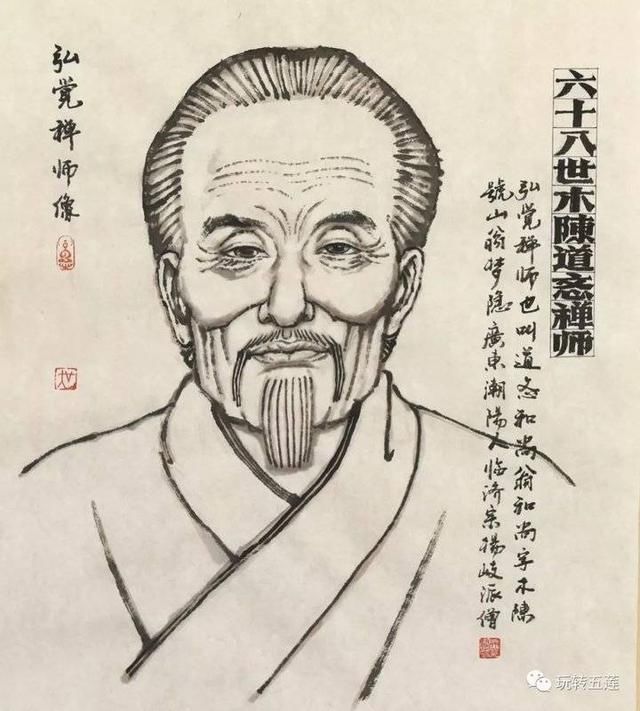 六十八世木陳道忞禅师
弘觉禅师也叫道忞和尚翁和尚字木陳
號山翁梦隐廣東潮陽人临济宗楊岐派僧
弘觉禅师像
玩转五莲